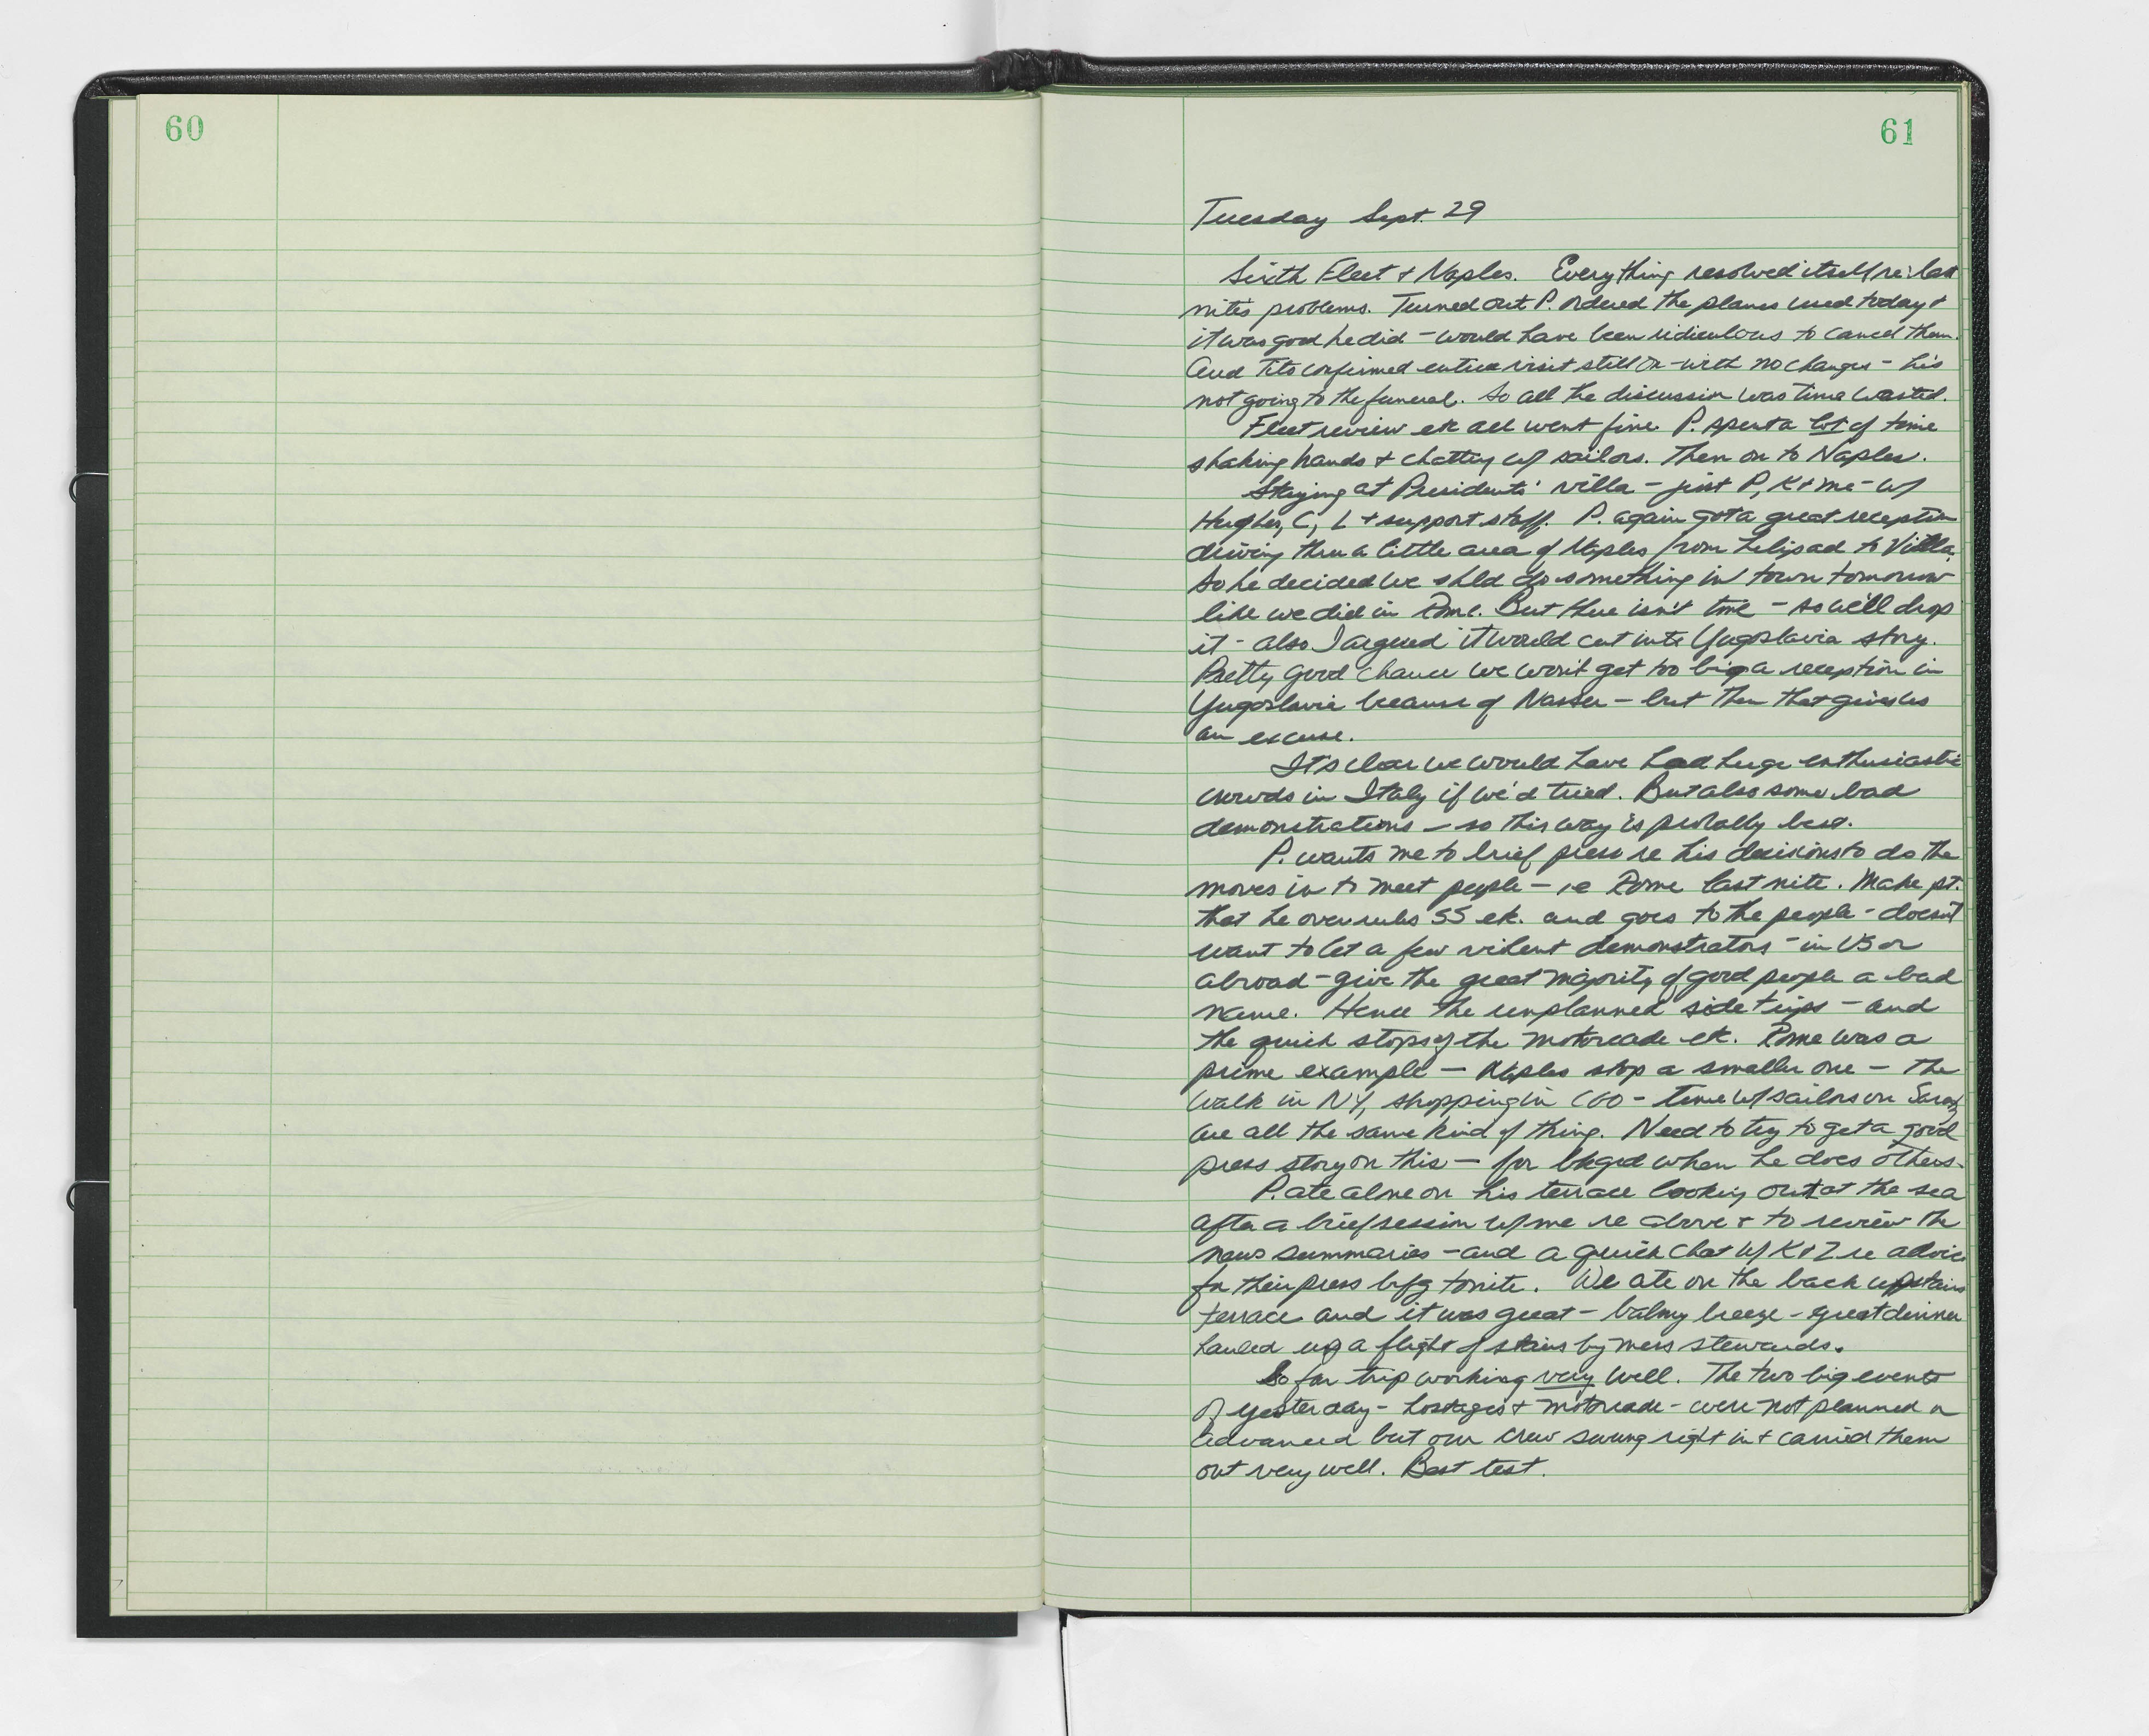 60
61
Tuesday Sept. 29
Sixth Fleet + Naples. Everything resolved itself re: last
nite's problems. Turned out P. ordered the planes used today +
it was good he did - would have been ridiculous to cancel them.
And Tito confirmed entire visit still on - with no changes - he's
not going to the funeral. So all the discussion was time wasted.
Fleet review etc all went fine. P. spent a lot of time
shaking hands + chatting w/ sailors. Then on to Naples.
Staying at Presidents' villa - just P, K + me - w/
Hughes, C, L + support staff. P. again got a great reception
driving thru a little area of Naples from helipad to Villa.
So he decided we shld do something in town tomorrow
like we did in Rome. But there isn't time - so we'll drop
it - also I argued it would cut into Yugoslavia story.
Pretty good chance we won't get too big a reception in
Yugoslavia because of Nasser - but then that gives us
an excuse.
It's clear we would have had huge enthusiastic
crowds in Italy if we'd tried. But also some bad
demonstrations - so this way is probally best.
P. wants me to brief press re his decisions to do the
moves in to meet people - ie Rome last nite. Make pt.
that he overrules SS etc. and goes to the people - doesn't
want to let a few violent demonstrators - in US or
abroad - give the great majority of good people a bad
name. Hence the unplanned side trips - and
the quick stops of the motorcade etc. Rome was a
prime example - Naples stop a smaller one - the
walk in NY, shopping in CGO - time w/ sailors on
are all the same kind of thing. Need to try to get a good
press story on this - for bkgrd when he does others.
P. ate alone on his terrace looking out at the sea
after a brief session w/ me re above + to review the
news summaries - and a quick chat w/ K + Z re advice
for their press bfg tonite. We ate on the back upstairs
terrace and it was great - balmy breeze - great dinner
hauled up a flight of stairs by mess stewards.
So far trip working very well. The two big events
of yesterday - hostages + motorcade - were not planned or
advanced but our crew swung right in + carried them
out very well. Best test.